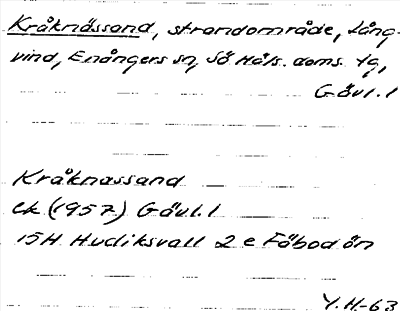 Kråknässand, strandområde, Lång-
vind, Enångers sn, Sö Häls. doms. tg,
Gävl. l
Kråknässand
ek (1957) Gävl. l
15H Hudiksvall 2 e Fäbodön
Y.H.-63